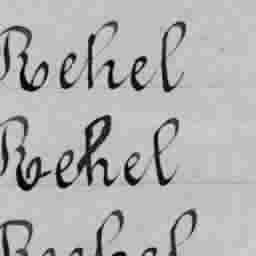 Rehel
Rehel